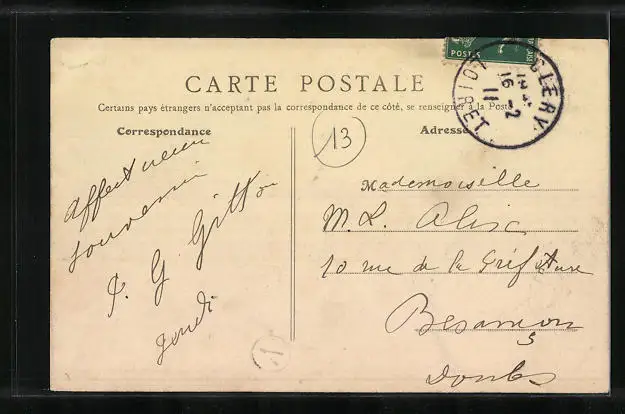 POSTES
CARTE POSTALE
Certains pays étrangers n'acceptant pas la correspondance de ce côté, se renseigner à la Poste
Correspondance
Adresse
13
CLERY
16 - 2
11
LOIRET
Affectueux
souvenir
G Gitton
jeudi
1
Mademoiselle
M. L. Alix
10 rue de la Préfecture
Besançon
Doubs